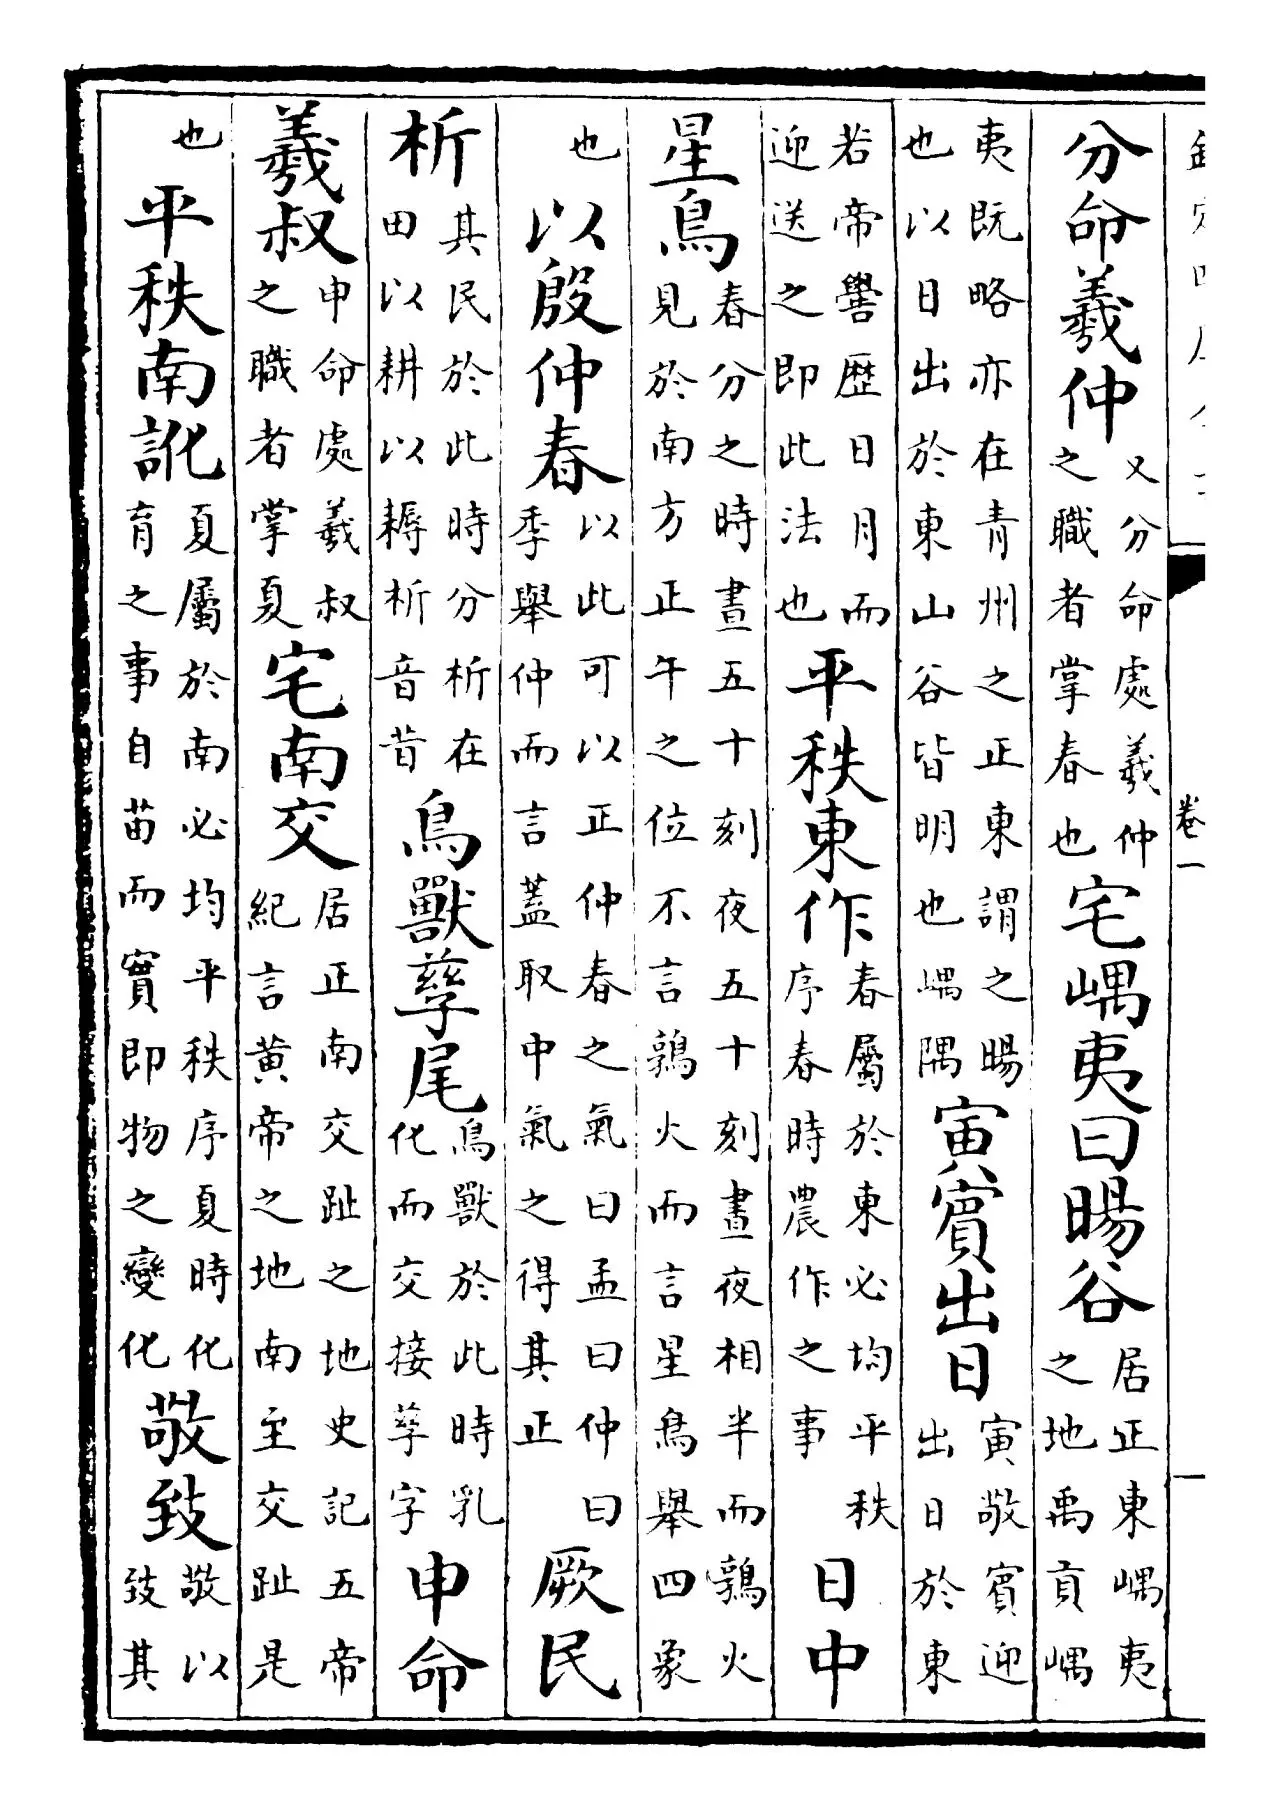 卷一
分命羲仲又分命處羲仲之職者掌春也宅嵎夷曰暘谷居正東嵎夷之地禹貢嵎
夷既略亦在青州之正東謂之暘也以日出於東山谷皆明也嵎隅寅賓出日寅敬賓迎出日於東
若帝嚳歴日月而迎送之即此法也平秩東作春屬於東必均平秩序春時農作之事日中
星鳥春分之時晝五十刻夜五十刻晝夜相半而鶉火見於南方正午之位不言鶉火而言星鳥舉四象
也以殷仲春以此可以正仲春之氣曰孟曰仲曰季舉仲而言蓋取中氣之得其正厥民
析其民於此時分析在田以耕以耨析音昔鳥獸孳尾鳥獸於此時乳化而交接孳字申命
羲叔申命處羲叔之職者掌夏宅南交居正南交趾之地史記五帝紀言黄帝之地南至交趾是
也平秩南訛夏屬於南必均平秩序夏時化育之事自苗而實即物之變化敬致敬以致其